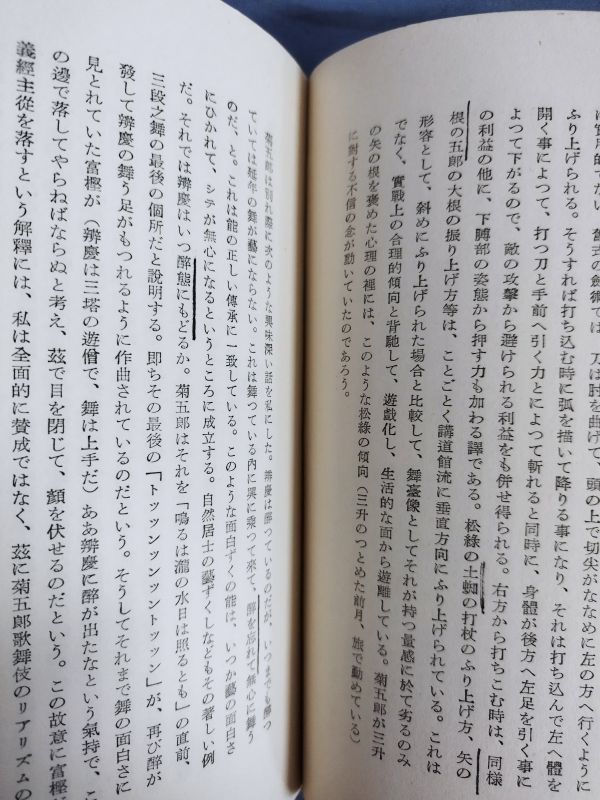 は實用的でない。舊式の劍術では、刀は肘を曲げて、頭の上で切尖がななめに左の方へ行くように
ふり上げられる。そうすれば打ち込む時に弧を描いて降りる事になり、それは打ち込んで左へ體を
開く事によつて、打つ刀と手前へ引く力とによつて斬れると同時に、身體が後方へ左足を引く事に
よつて下がるので、敵の攻擊から避けられる利益をも併せ得られる。右方から打ちこむ時は、同樣
の利益の他に、下膊部の姿態から押す力も加わる譯である。松綠の土蜘の打杖のふり上げ方、矢の
根の五郎の大根の振り上げ方等は、ことごとく講道館流に垂直方向にふり上げられている。これは
形容として、斜めにふり上げられた場合と比較して、舞臺像としてそれが持つ量感に於て劣るのみ
でなく、實戰上の合理的傾向と背馳して、遊戲化し、生活的な面から遊離している。菊五郎が三升
の矢の根を褒めた心理の裡には、このような松綠の傾向（三升のつとめた前月、旅で勤めている）
に對する不信の念が動いていたのであろう。
菊五郎は別れ際に次のような興味深い話を私にした。辨慶は醉つているのだが、いつまでも醉つ
ていては延年の舞が藝にならない。これは舞つている内に興に乘つて來て、醉を忘れて無心に舞う
のだ、と。これは能の正しい傳承に一致している。このような面白ずくの能は、いつか藝の面白さ
にひかれて、シテが無心になるというところに成立する。自然居士の藝ずくしなどもその著しい例
だ。それでは辨慶はいつ醉態にもどるか。菊五郎はそれを「鳴るは瀧の水日は照るとも」の直前、
三段之舞の最後の個所だと說明する。即ちその最後の「トッツンツンツントッツン」が、再び醉が
發して辨慶の舞う足がもつれるように作曲されているのだという。そうしてそれまで舞の面白さに
見とれていた富樫が（辨慶は三塔の遊僧で、舞は上手だ）ああ辨慶に醉が出たなという氣持で、こ
の邊で落してやらねばならぬと考え、玆で目を閉じて、顏を伏せるのだという。この故意に富樫が
義經主從を落すという解釋には、私は全面的に賛成ではなく、玆に菊五郎歌舞伎のリアリズムの